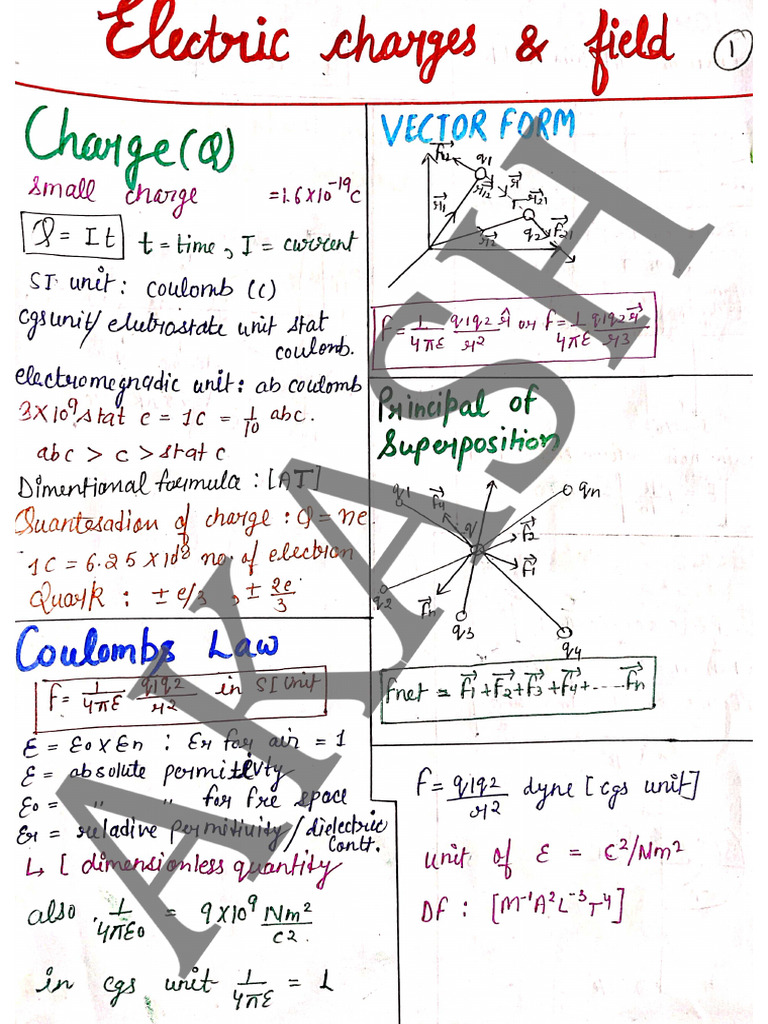 Electric charges & field 1
Charge (Q)
Small charge = 1.6 × 10⁻¹⁹ C
Q = It t = time, I = current
SI unit: coulomb (C)
cgs unit/ elutrostate unit stat
coulomb.
electromegnadic unit: ab coulomb
3×10⁹ stat c = 1C = 1/10 abc.
abc > c > stat c
Dimentional formula : [AT]
Quantesadion of charge : Q = ne
1C = 6.25 × 10¹⁸ no. of electron
Quark : ± e/3 , ± 2e/3
Coulombs Law
F = 1/4πε q1q2/r² in SI Unit
ε = ε0 × εr : εr for air = 1
ε = absolute permitivity
ε0 = " " for fre space
εr = reladive permitiuity / dielectric
contt.
↳ [ dimensionless quantity
also, 1/4πε0 = 9×10⁹ Nm²/C2.
in cgs unit 1/4πε = 1
VECTOR FORM
F12 q1
r12 r r21
r1
r2 q2 F21
F = 1/4πε q1q2 r̂/r² or F = 1/4πε q1q2 r⃗/r3
Principal of
Superposition
q1 F4 q qn
F2
F1
q2 Fn
q3
q4
Fnet = F⃗1 + F⃗2 + F⃗3 + F⃗4 + ..... F⃗n
F = q1q2/r² dyne [cgs unit]
unit of ε = C²/Nm²
DF : [M⁻¹A²L⁻³T⁴]
AKASH